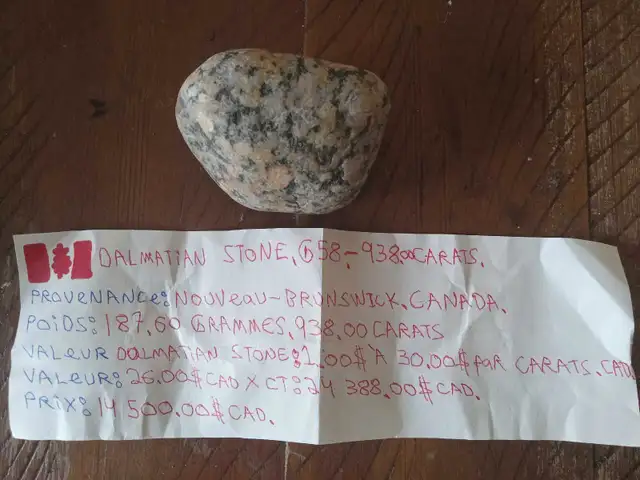 DALMATIAN STONE, 58-938.00 CARATS.
PROVENANCE: NOUVEAU-BRUNSWICK, CANADA.
POIDS: 187.60 GRAMMES, 938.00 CARATS
VALEUR DALMATIAN STONE: 1.00$ À 30.00$ PAR CARATS. CAD
VALEUR: 26.00$ CAD X CT: 24 388.00$ CAD.
PRIX: 14 500.00$ CAD.